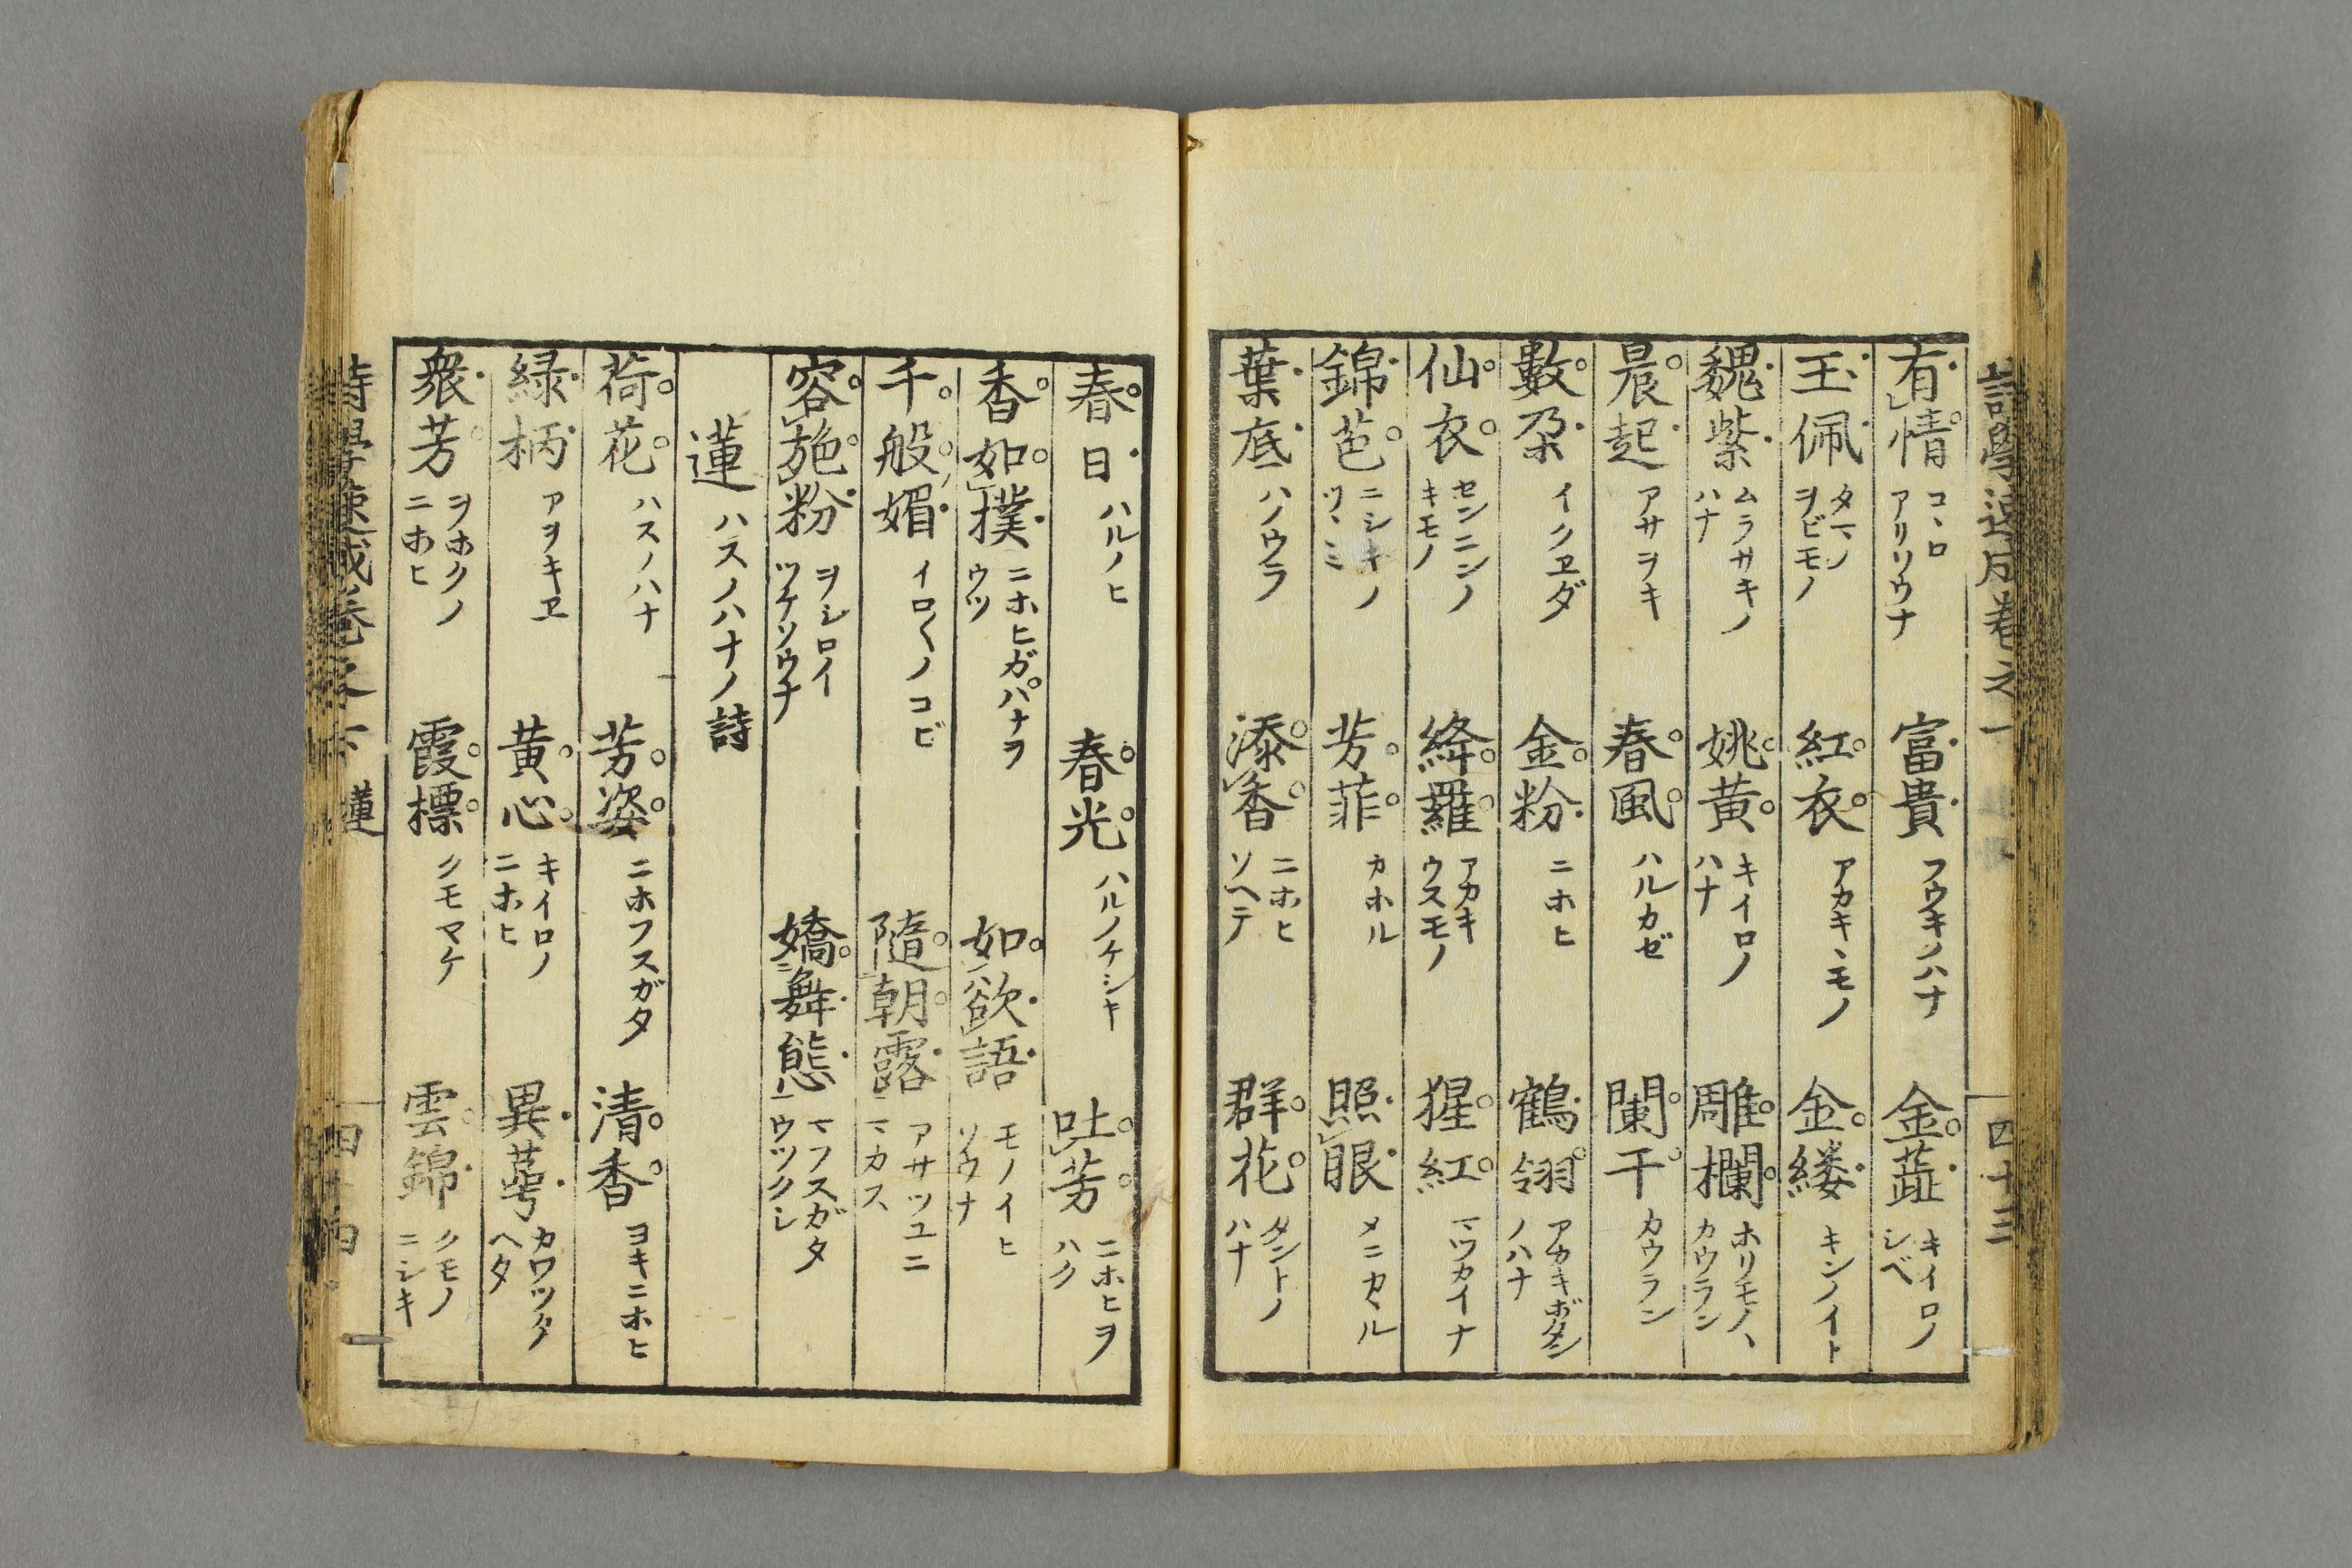 詩學速成卷之一
四十三
有情 コヽロアリソウナ 富貴 フウキノハナ 金蘂 キイロノシベ
玉佩 タマノヲビモノ 紅衣 アカキヽモノ 金縷 キンノイト
魏紫 ムラサキノハナ 姚黄 キイロノハナ 雕欄 ホリモノヽカウラン
晨起 アサヲキ 春風 ハルカゼ 闌干 カウラン
數朶 イクヱダ 金粉 ニホヒ 鶴翎 アカキボタンノハナ
仙衣 センニンノキモノ 絳羅 アカキウスモノ 猩紅 マツカイナ
錦苞 ニシキノツヽミ 芳菲 カホル 照眼 メニカヽル
葉底 ハノウラ 添香 ニホヒソヘテ 群花 タントノハナ
春日 ハルノヒ 春光 ハルノケシキ 吐芳 ニホヒヲハク
香如撲 ニホヒガハナヲウツ 如欲語 モノイヒソウナ
千般媚 イロ〱ノコビ 隨朝露 アサツユニマカス
容施粉 ヲシロイツケソウナ 嬌舞態 マフスガタウツクシ
蓮 ハスノハナノ詩
荷花 ハスノハナ 芳姿 ニホフスガタ 清香 ヨキニホヒ
緑柄 アヲキヱ 黄心 キイロノニホヒ 異萼 カワツタヘタ
衆芳 ヲホクノニホヒ 霞標 クモマケ 雲錦 クモノニシキ
詩學速成卷之一 蓮
四十四